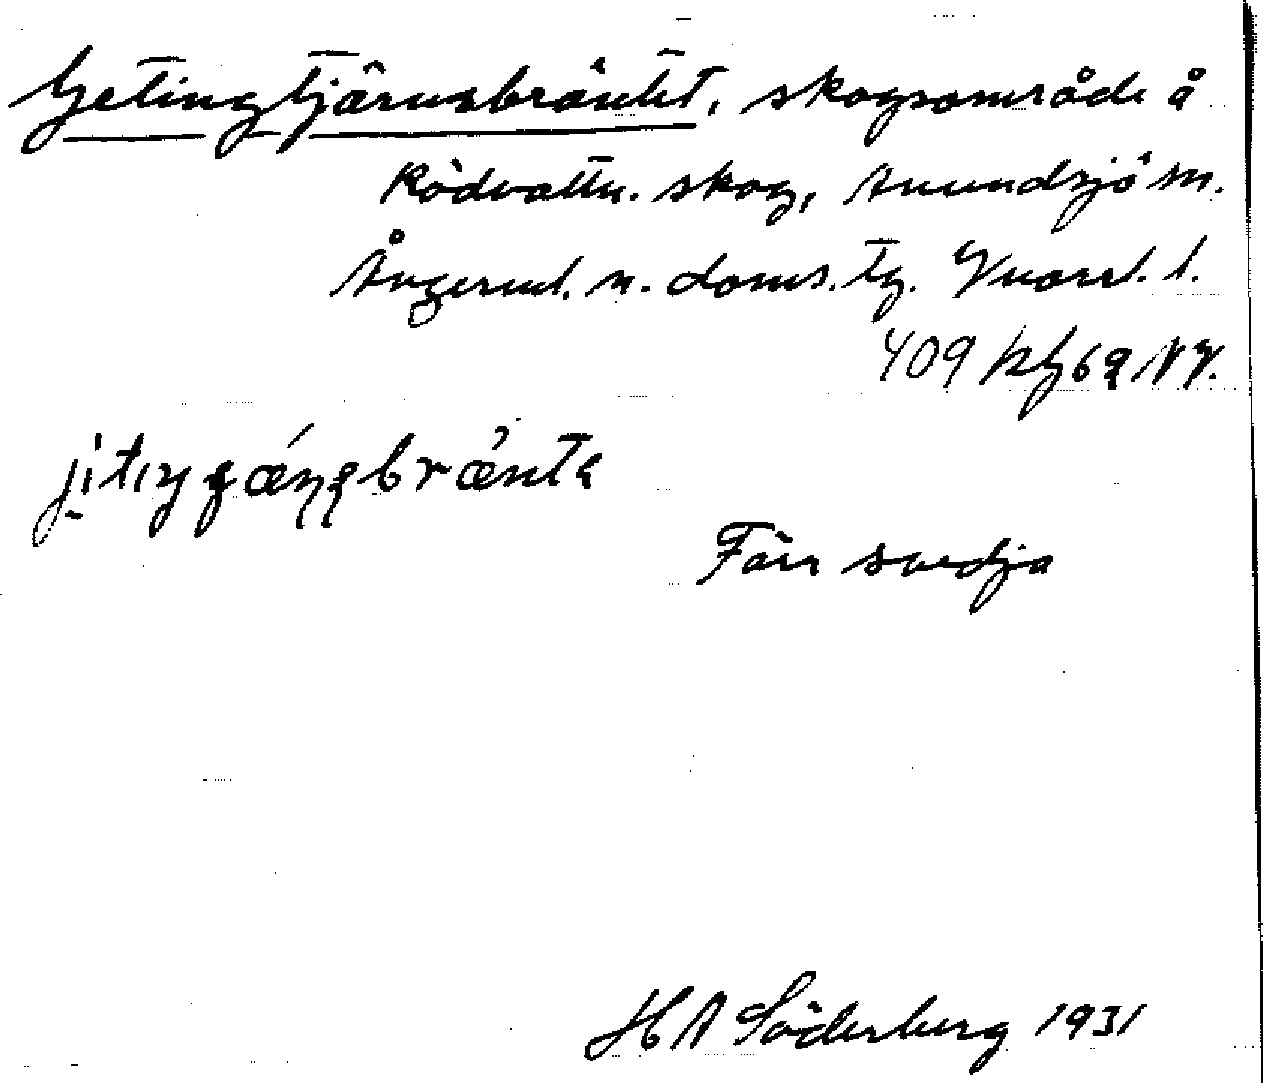 Getingtjärnsbräntet, skogsområde å
Rödvattn. skog, Anundsjö sn.
Ångerml. n. doms. tg. Vnorrl. l.
409 kf 69 NV.
Förr svedja
H A Söderberg 1931